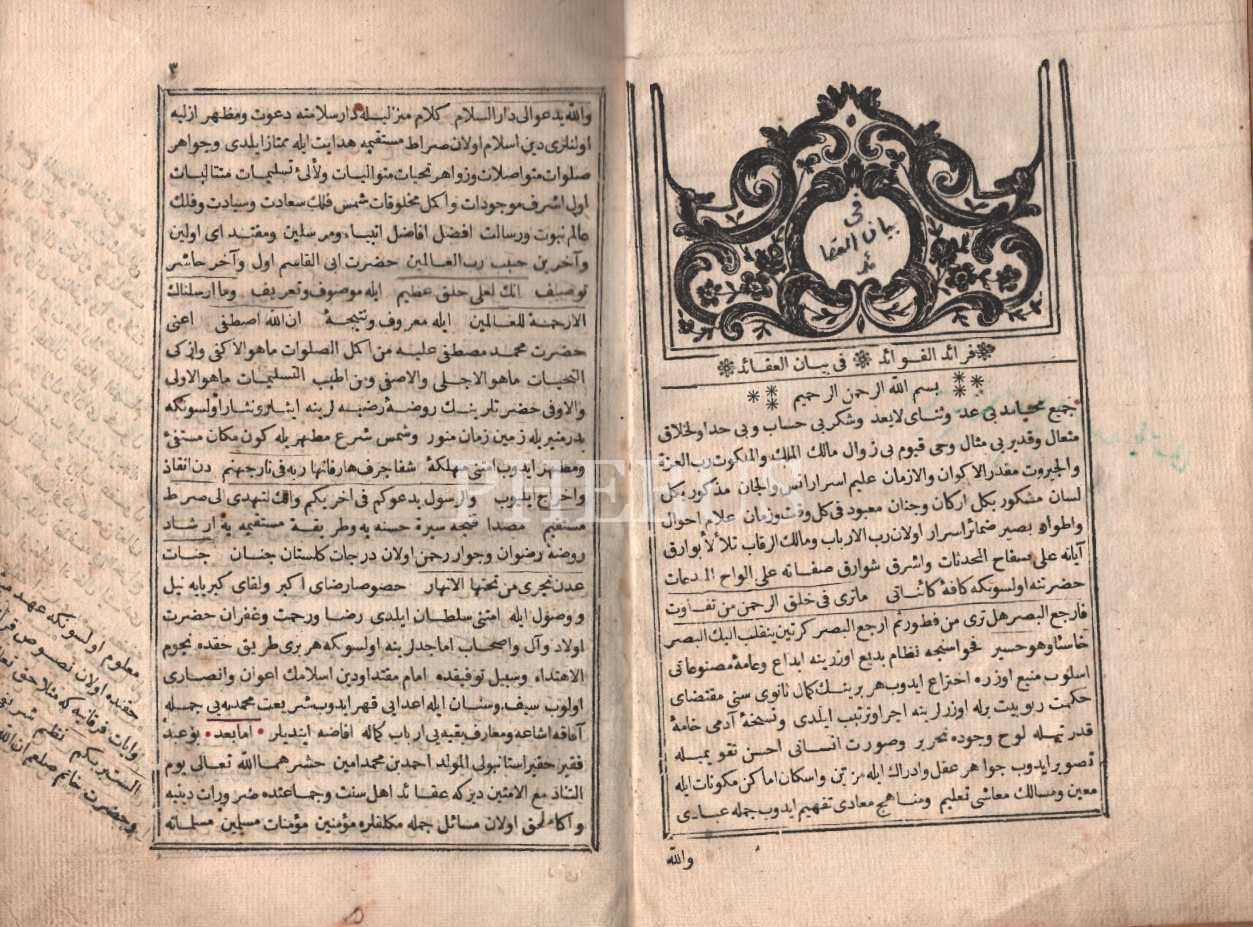 فى
بيان العقا
ئد
فرائد الفوائد فى بيان العقائد
بسم الله الرحمن الرحيم
جميع محامد بى عد وثناى لايعد وشكر بى حساب وبى حد اول خلاق
متعال وقدير بى مثال وحى قيوم بى زوال مالك الملك والملكوت رب العزة
والجبروت مقدر الاكوان والازمان عليم اسرار انس والجان مذكور بكل
لسان مشكور بكل اركان وجنان معبود فى كل وقت وزمان علام احوال
واطوار بصير ضمائر اسرار اولان رب الارباب ومالك الرقاب تلألأ بوارق
آياته على صفاح المحدثات واشرق شوارق صفاته على الواح المبدعات
حضرتنه اولسونكه كافۀ كائناتى ماترى فى خلق الرحمن من تفاوت
فارجع البصر هل ترى من فطور ثم ارجع البصر كرتين ينقلب اليك البصر
خاسئا وهو حسير فحواسنجه نظام بديع اوزرينه ابداع وعامۀ مصنوعاتى
اسلوب منيع اوزره اختراع ايدوب هر برينك كمال ثانوى سنى مقتضاى
حكمت ربوبيت برله اوزرلرينه اجرا وترتيب ايلدى ونسخۀ آدمى خامۀ
قدرتيله لوح وجوده تحرير وصورت انسانى احسن تقويمله
تصوير ايدوب جواهر عقل وادراك ايله مزين واسكان اماكن مكونات ايله
معين ومسالك معاشى تعليم ومناهج معادى تفهيم ايدوب جمله عبادى
والله
٣
والله يدعو الى دار السلام كلام منزليله دار سلامته دعوت ومظهر ازليه
اولنلرى دين اسلام اولان صراط مستقيمه هدايت ايله ممتاز ايلدى وجواهر
صلوات متواصلات وزواهر تحيات متواليات ولآلئ تسليمات متتاليات
اول اشرف موجودات واكمل مخلوقات شمس فلك سعادت وسيادت وفلك
عالم نبوت ورسالت افضل افاضل انبياء ومرسلين ومقتداى اولين
وآخرين حبيب رب العالمين حضرت ابى القاسم اول وآخر حاشر
توصيف انك لعلى خلق عظيم ايله موصوف وتعريف وما ارسلناك
الا رحمة للعالمين ايله معروف ونتيجۀ ان الله اصطفى اعنى
حضرت محمد مصطفى عليه من اكمل الصلوات ماهو الاكفى وازكى
التحيات ماهو الاجلى والاصفى ومن اطيب التسليمات ماهو الاولى
والاوفى حضرتلرينك روضۀ رضيه لرينه ايثار ونثار اولسونكه
بدر منيريله زمين زمان منور وشمس شرع مطهريله كون مكان مستنئ
ومظهر ايدوب امتى مهلكۀ شفا جرف هار فانهار به فى نار جهنم دن انقاذ
واخراج ايليوب والرسول يدعوكم فى اخريكم وانك لتهدى الى صراط
مستقيم مصداقنجه سيرة حسنه يه وطريقة مستقيمه يه ارشاد
روضۀ رضوان وجوار رحمن اولان درجات كلستان جنان جنات
عدن تجرى من تحتها الانهار خصوصا رضاى اكبر ولقاى كبريايه نيل
ووصول ايله امتنى سلطان ايلدى رضا ورحمت وغفران حضرت
اولاد وآل واصحاب اماجدلرينه اولسونكه هر برى طريق حقده نجوم
الاهتداء وسبيل توفيقده امام مقتدا ودين اسلامك اعوان وانصارى
اولوب سيف وسنان ايله اعدايى قهر ايدوب شريعت محمديه يى جمله
آفاقه اشاعه ومعارف يقينيه يى ارباب كماله افاضه ايتديلر اما بعد بو عبد
فقير حقير استانبولى المولد احمد بن محمد امين حشرهما الله تعالى يوم
التناد مع الامنين ديركه عقائد اهل سنت وجماعتده ضرورات دينيه
واكا ملحق اولان مسائل جمله مكلفلره مؤمنين مؤمنات مسلمين مسلماته
معلوم اولسونكه عهد
حقنده اولان نصوص
وآيات قرآنيه كه مثلا حق تعالى
الست بربكم نظم شريف
وحضرت خاتم صلعم ان الله